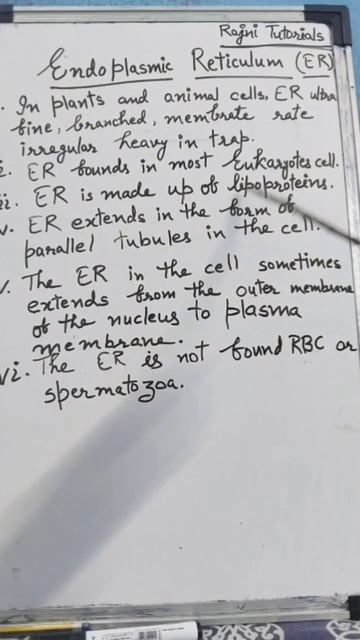 Rajni Tutorials
Endoplasmic Reticulum (ER)
. In plants and animal cells, ER ultra
fine, branched, membrate rate
irregular heavy in trap.
i. ER founds in most Eukaryotes cell.
ii. ER is made up of lipoproteins.
v. ER extends in the form of
parallel tubules in the cell.
v. The ER in the cell sometimes
extends from the outer membrane
of the nucleus to plasma
membrane.
vi. The ER is not found RBC or
spermatozoa.